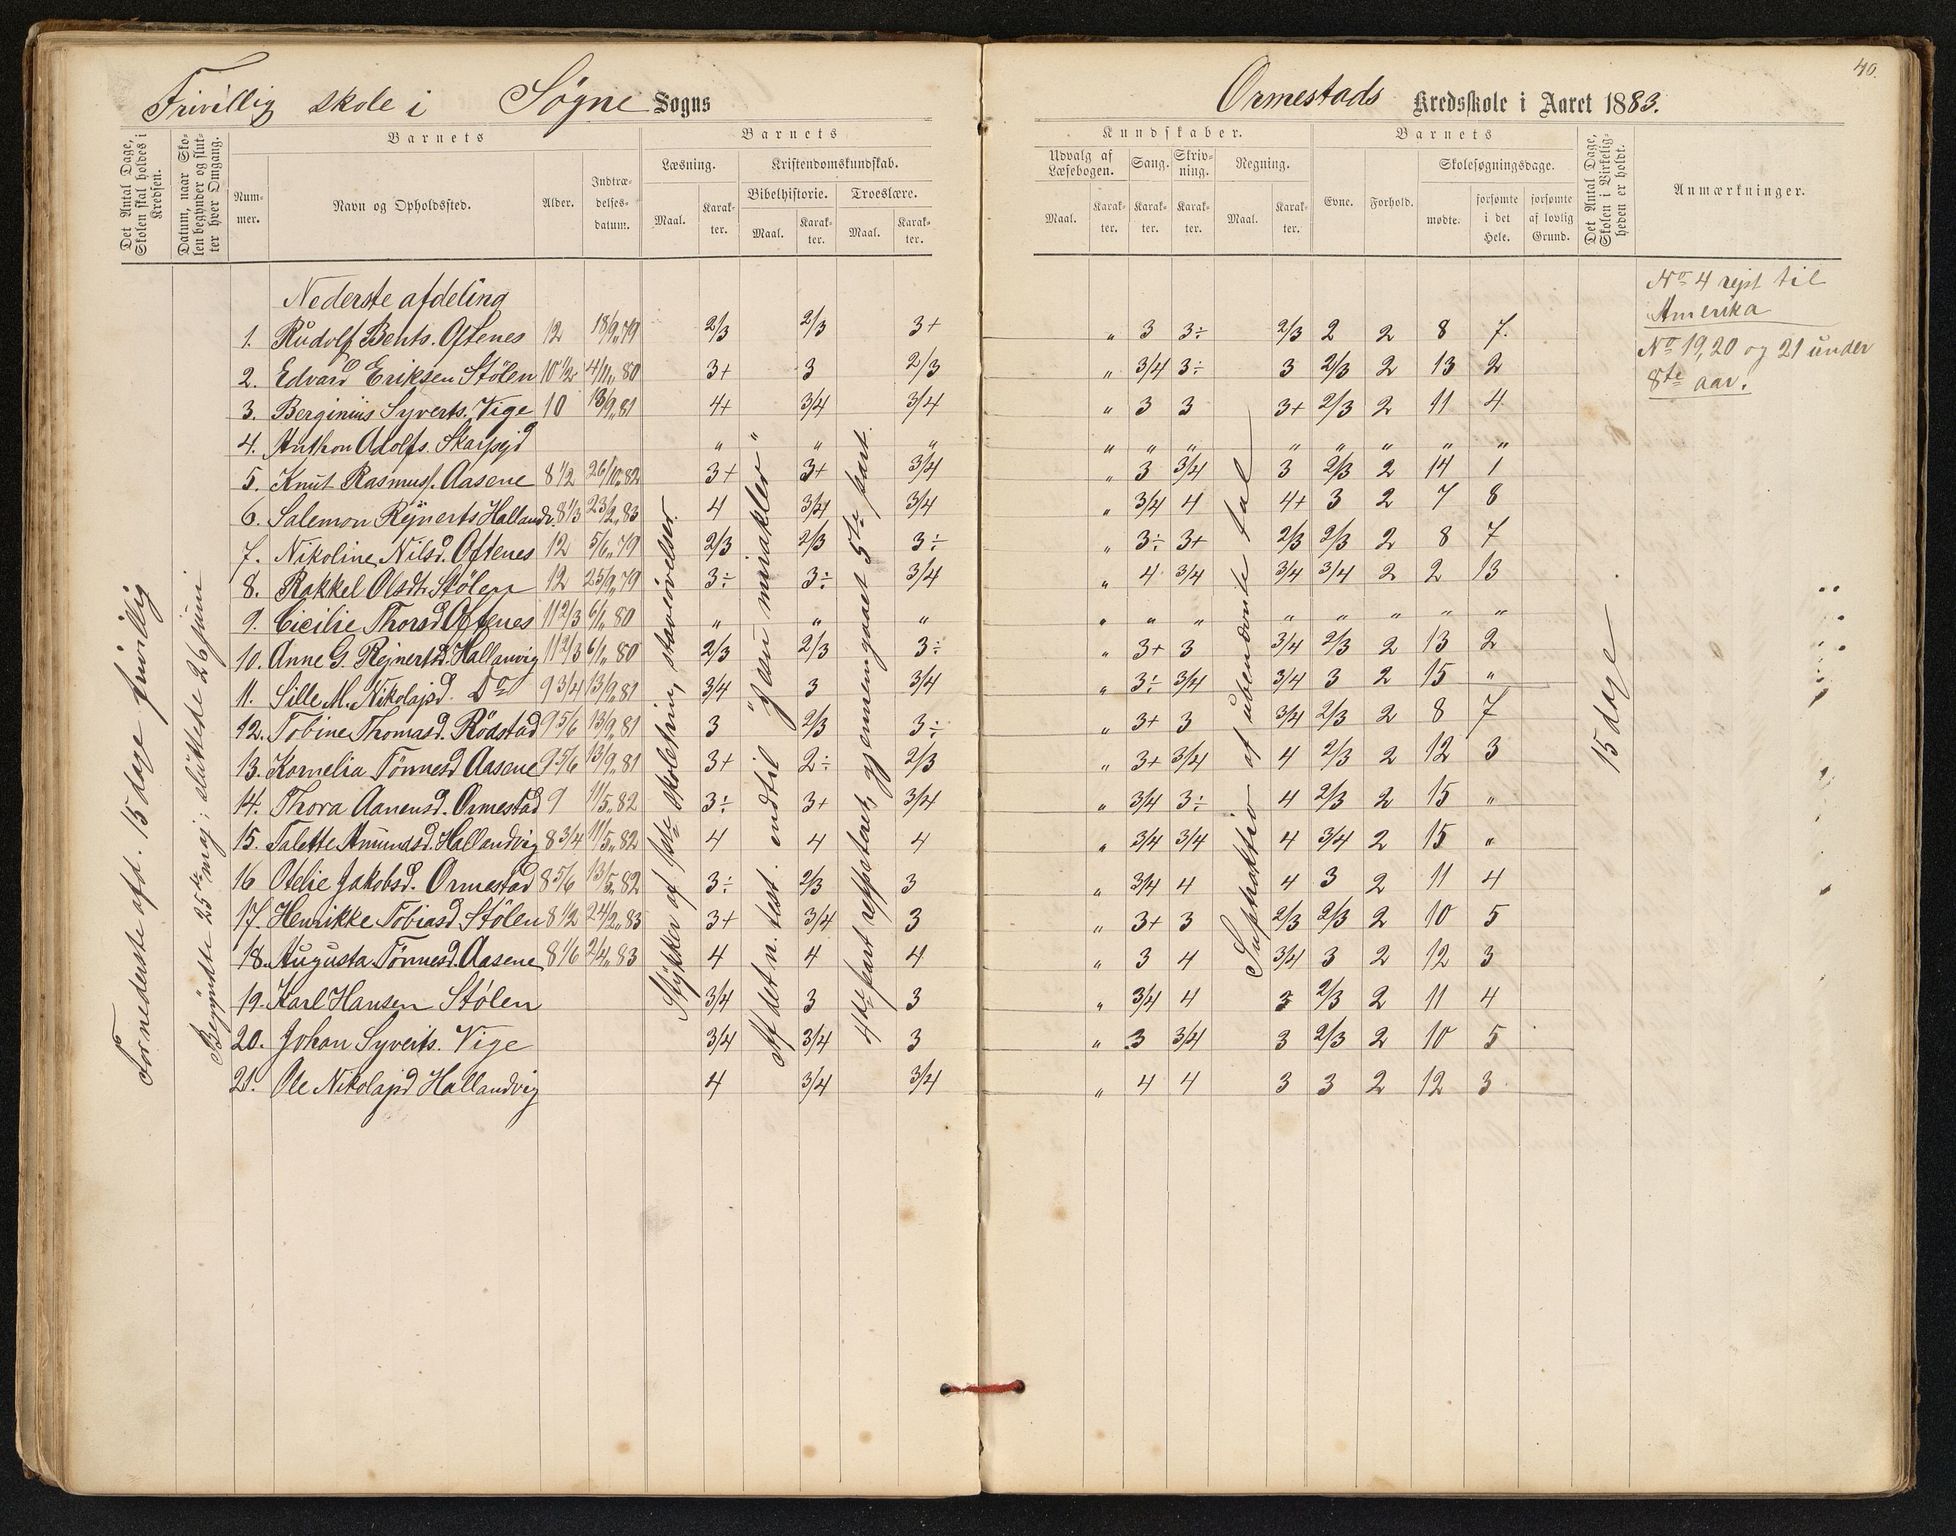 Frivillig skole i Søgne Sogns
Ormestads Kredsskole i Aaret 1883.
40.
Det Antal Dage, Skolen skal holdes i Kredsen.
Datum, naar Skolen begynder og slutter hver Omgang.
Barnets
Nummer.
Navn og Opholdssted.
Alder.
Indtrædelsesdatum.
Barnets
Læsning.
Maal.
Karakter.
Kristendomskundskab.
Bibelhistorie.
Maal.
Karakter.
Troeslære.
Maal.
Karakter.
Kundskaber.
Udvalg af Læsebogen.
Maal.
Karakter.
Sang.
Karakter.
Skrivning.
Karakter.
Regning.
Maal.
Karakter.
Barnets
Evne.
Forhold.
Skolesøgningsdage.
mødte.
forsømte i det Hele.
forsømte af lovlig Grund.
Det Antal Dage, Skolen i Virkeligheden er holdt.
Anmærkninger.
Fornederste afd. 15 dage frivillig
Begyndte 25de maj; sluttede 26 juni
Nederste afdeling
1. Rudolf Bents. Oftenes 12 18/9 79 2/3 2/3 3+ „ 3 3÷ 2/3 2 2 8 7.
2. Edvard Eriksen Stölen 10 1/2 4/11 80 3+ 3 2/3 „ 3/4 3÷ 3 2/3 2 13 2
3. Berginius Syverts. Vige 10 13/9 81 4+ 3/4 3/4 „ 3 3 3+ 2/3 2 11 4
4. Anthon Adolfs. „ „ „ „ „ „ „ „ „ „ „
5. Knut Rasmus. Aasene 8 1/2 26/10 82 3+ 3+ 3/4 „ 3 3/4 3 2/3 2 14 1
6. Salemon Rejnerts Hallandv. 8 1/3 23/2 83 4 3/4 3/4 „ 3/4 4 4+ 3 2 7 8
7. Nikoline Nilsd. Oftenes 12 5/6 79 2/3 2/3 3÷ „ 3÷ 3+ 2/3 2/3 2 8 7
8. Rakkel Olsdt. Stölen 12 25/9 79 3÷ 3÷ 3/4 „ 4 3/4 3/4 3/4 2 2 13
9. Cicilie Thorsd Oftenes 11 2/3 6/1 80 „ „ „ „ „ „ „ „ „ „ „
10. Anne G. Rejnertsd. Hallanvig 11 2/3 6/1 80 2/3 2/3 3÷ „ 3+ 3 3/4 2/3 2 13 2
11. Sille M. Nikolajsd. Do 9 3/4 13/9 81 3/4 3 3/4 „ 3÷ 3/4 3/4 3 2 15 „
12. Tobine Thomasd. Rödstad 9 5/6 13/9 81 3 2/3 3÷ „ 3+ 3 3/4 2/3 2 8 7
13. Kornelia Tönnesd Aasene 9 5/6 13/9 81 3+ 2÷ 2/3 „ 3+ 3/4 4 2/3 2 12 3
14. Thora Aanensd. Ormestad 9 11/5 82 3÷ 3+ 3/4 „ 3/4 3÷ 4 2/3 2 15 „
15. Talette Amundsd. Hallandvig 8 3/4 11/5 82 4 4 4 „ 3/4 3/4 4 3/4 2 15 „
16 Otelie Jakobsd. Ormestad 8 5/6 13/5 82 3÷ 2/3 3 „ 3/4 4 4 3 2 11 4
17. Henrikke Tobiasd. Stölen 8 1/2 24/2 83 3+ 3/4 3 „ 3+ 3 2/3 2/3 2 10 5
18. Augusta Tönnesd. Aasene 8 1/6 2/4 83 4 4 4 „ 3 4 3/4 3 2 12 3
19. Karl Hansen Stølen 3/4 3 3 „ 3/4 4 3 2/3 2 11 4
20. Johan Syverts. Vige 3/4 3/4 3 „ 3 3/4 3 2/3 2 10 5
21. Ole Nikolajsd Hallandvig 4 3/4 3/4 „ 4 4 3 3 2 12 3
Stykker af 1ste skoletrin, staveövelser.
Af det n. test. indtil "Jesu mirakler"
4de part reppeteret, gjennemgaaet 5te part.
Supstraktsio af ubenævnte tal
15 dage.
No 4 rejst til
Amerika
No 19, 20 og 21 under
8te aar.